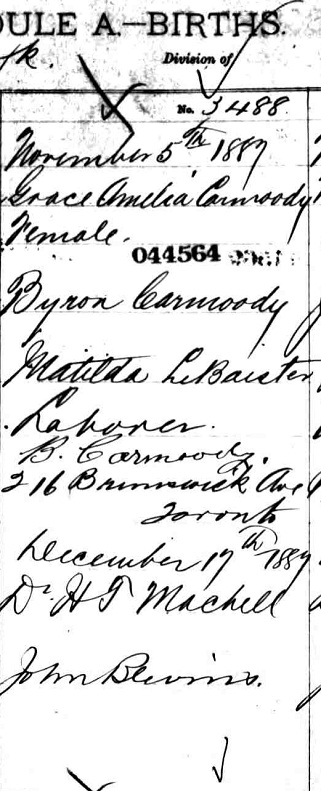 DULE A.—BIRTHS.
rk.
Division of
No. 3488.
November 5th 1887
Grace Amelia Carmoody
Female.
044564
Byron Carmoody
Matilda LeBaister
Laborer.
B. Carmoody.
216 Brunswick Ave
Toronto
December 17th 1887
Dr H T Machell
John Blevins.